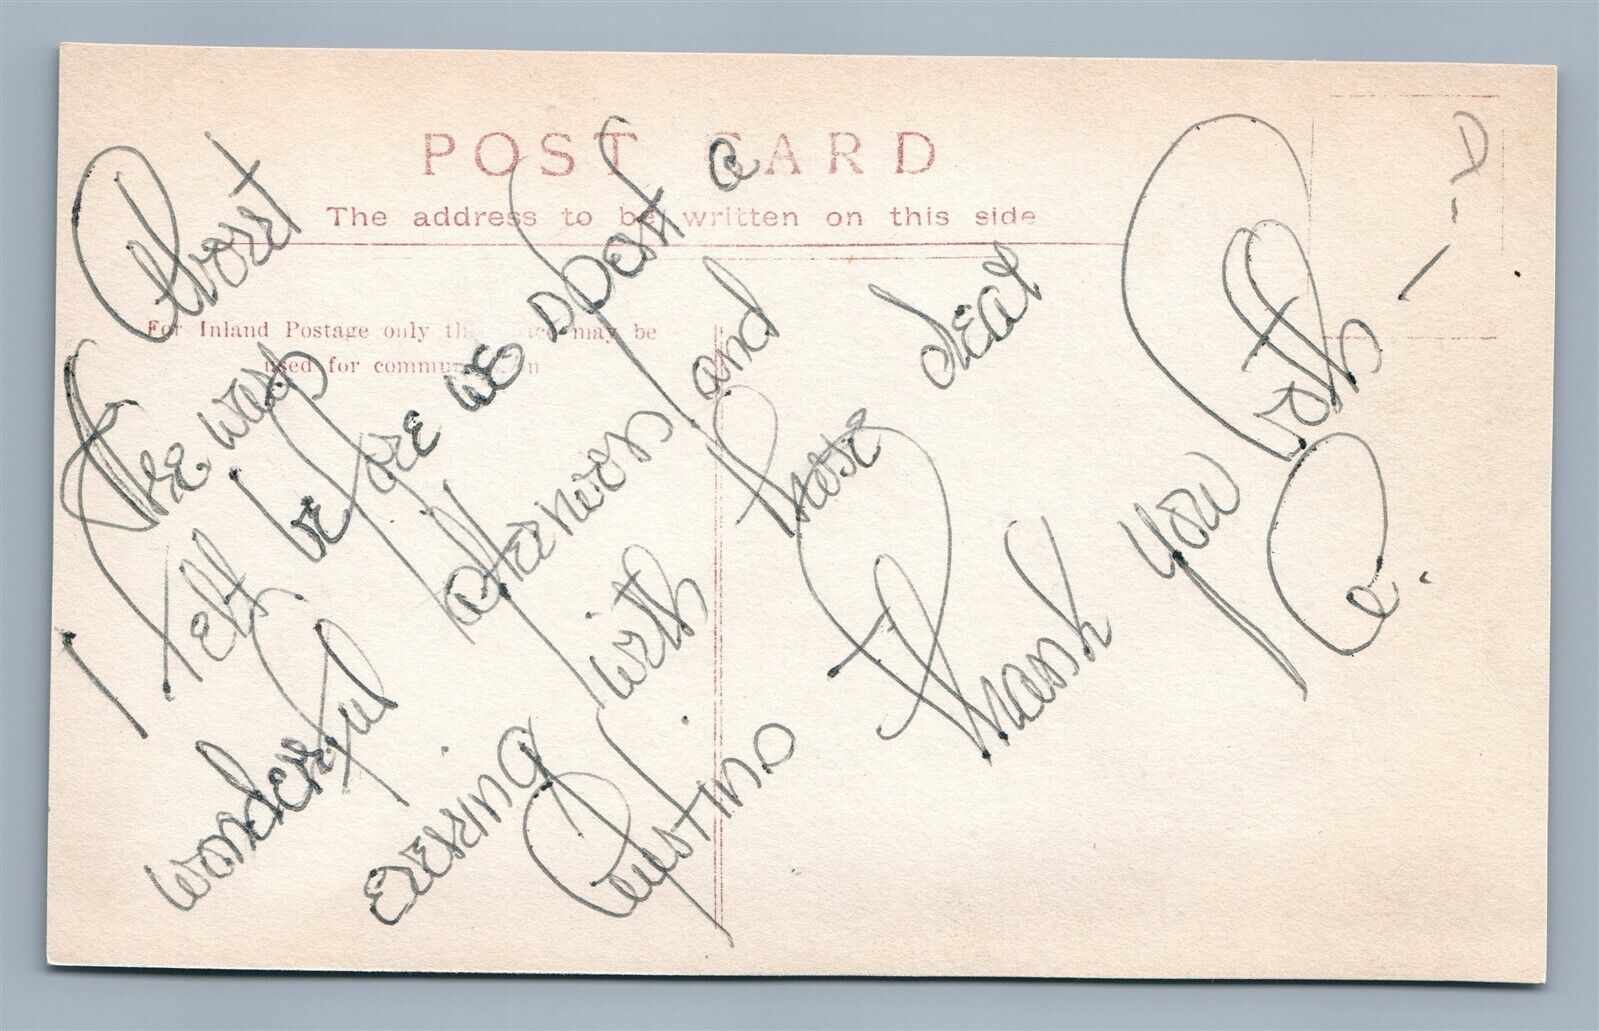 POST CARD
The address to be written on this side
For Inland Postage only this space may be
used for communication
The way
I felt before we spent a
wonderful afternoon and
evening with these dear
Thank you both
D